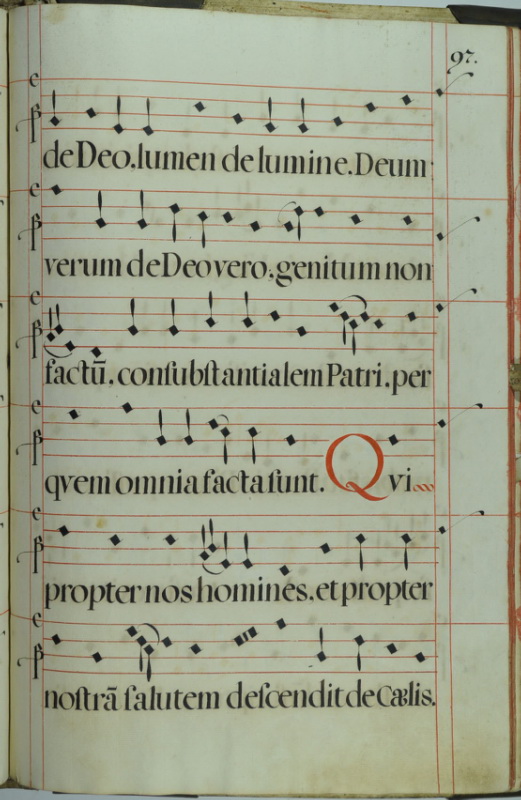 97.
de Deo. lumen de lumine. Deum
verum de Deo vero. genitum non
factū. conſubſtantialem Patri. per
qvem omnia facta ſunt. Qvi
propter nos homines. et propter
noſtrā ſalutem deſcendit de Cælis.